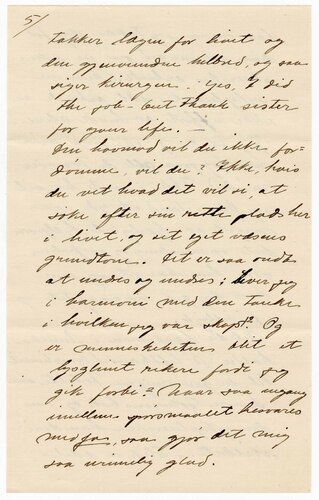 5/
takker lægen for livet og
den gjenvundne helbred, og saa
siger kirurgen: Yes, I did
the job - but thank sister
for your life. —
Den hovmod vil du ikke for-
dømme, vil du? Ikke, hvis
du vet hvad det vil si, at
søke efter sin rette plads her
i livet, og sit eget væsens
grundtone. Det er saa ondt
at undres og undres; lever jeg
i harmoni med den tanke
i hvilken jeg var skapt? Og
er menneskeheten blit et
lysglimt rikere fordi jeg
gik forbi? Naar saa engang
imellem spørsmaalet besvares
med ja, saa gjør det mig
saa urimelig glad.